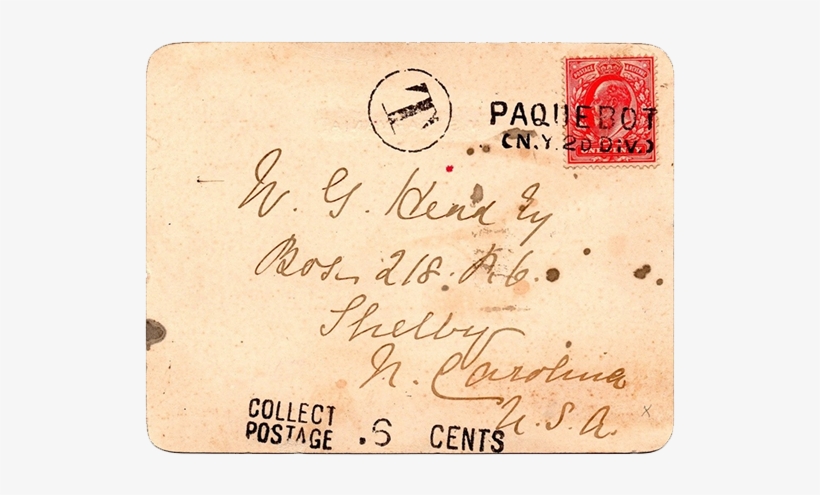 T
PAQUEBOT
(N.Y. 2D DIV.)
POSTAGE & REVENUE
W. G. Head Esq
Box 218. R. 6.
Shelby
N. Carolina
U. S. A.
COLLECT
POSTAGE .6 CENTS